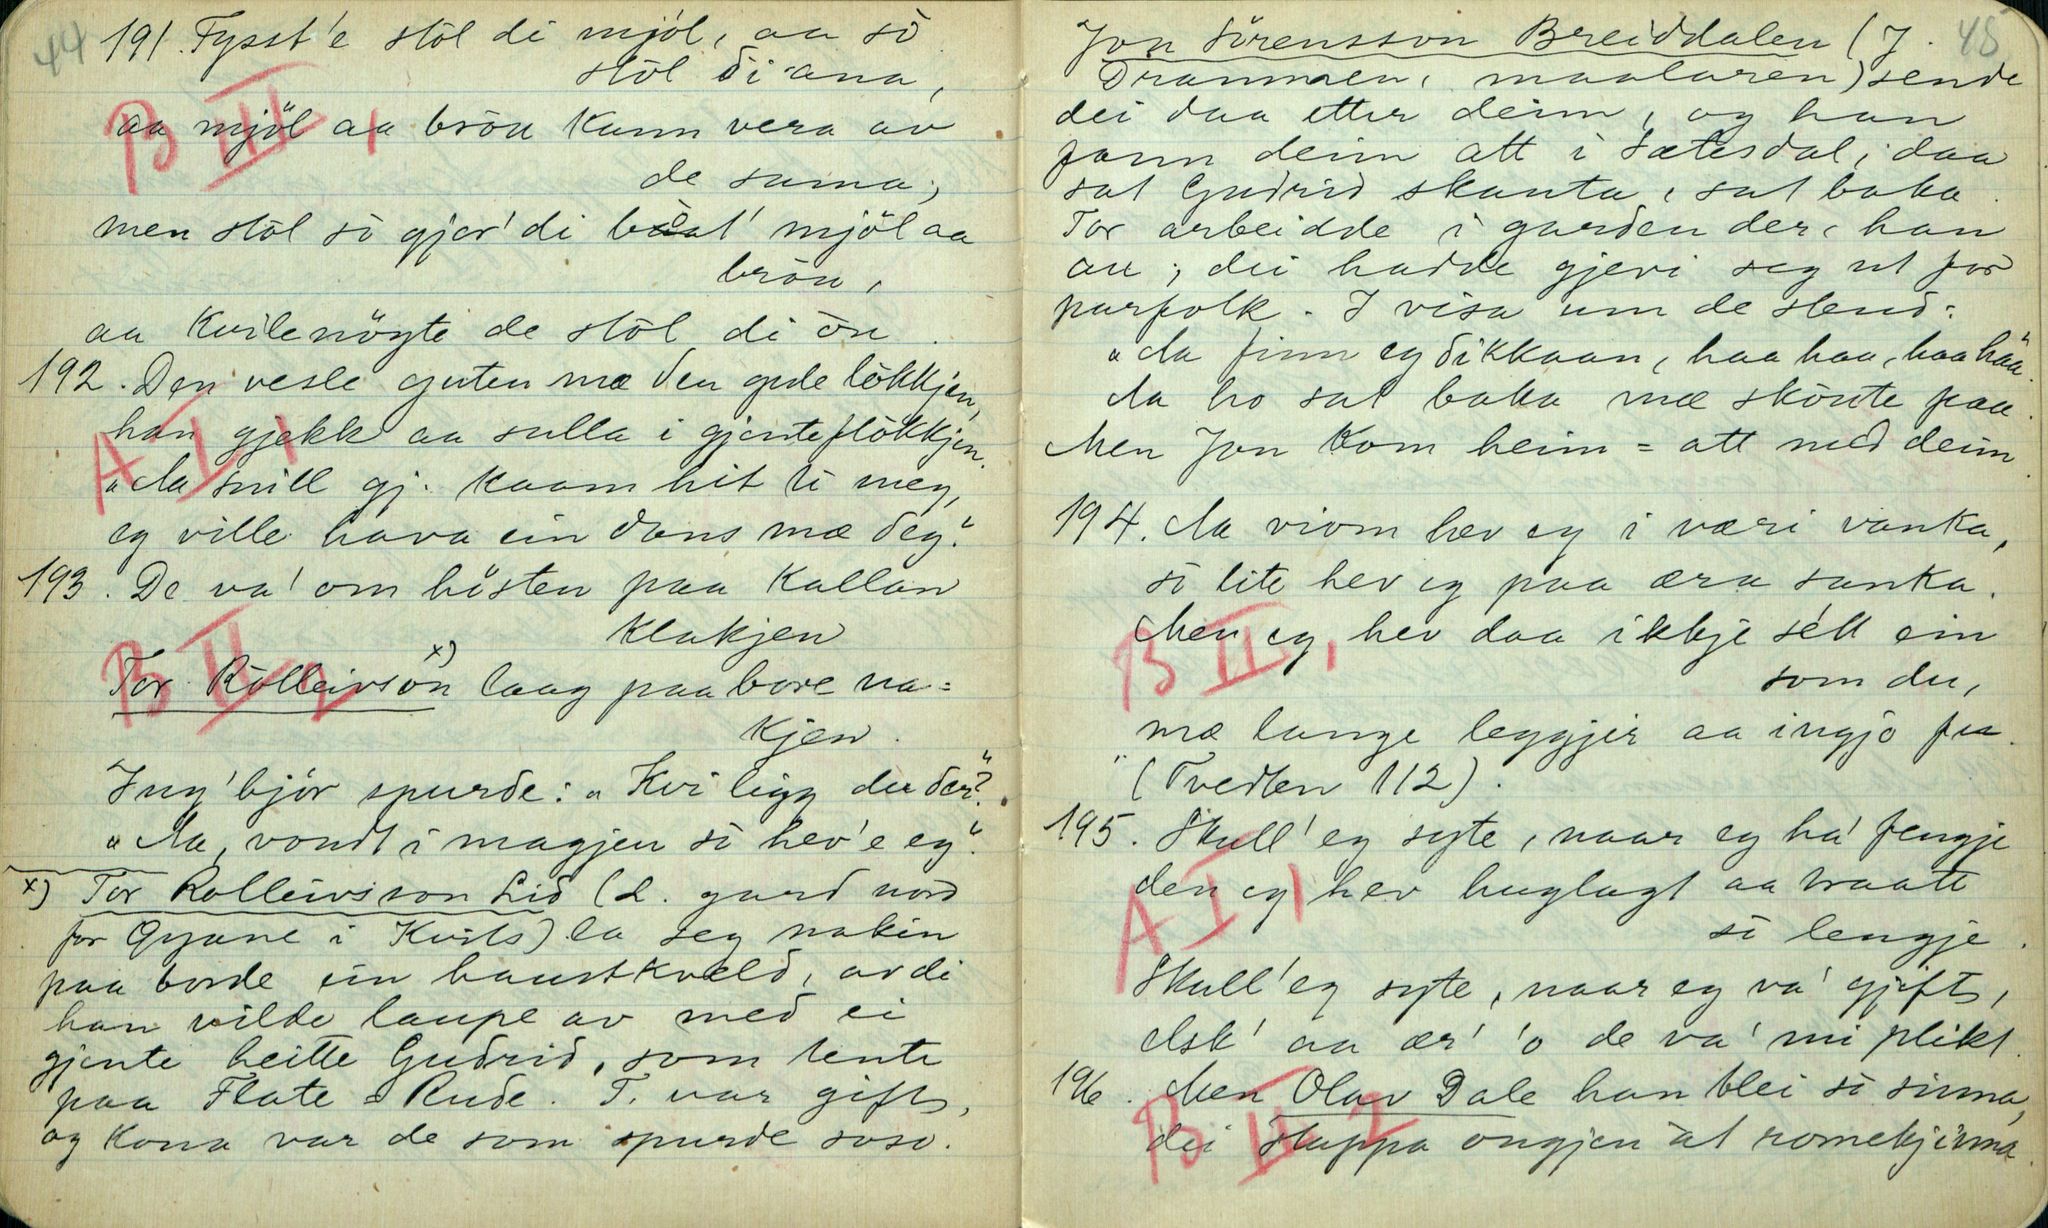 44
191. Fysst'e stòl di mjöl, aa sò
stòl di ana,
B III, 1
aa mjöl aa bròu kann vera av
de sama,
men stòl sò gjer' di bèst' mjöl aa
bròu,
aa kvilenöyte de stòl di òu.
192. Den vesle guten mæ den gule lökkjen,
han gjekk aa sulla i gjenteflökkjen.
A I, 1
„Aa snill gj. kaam hit ti meg,
eg ville hava ein dans mæ deg."
193. De va' om hästen paa Kallan
klakjen
B II, 2
Tor Rölleivsòn x) laag paa bore na=
kjen.
Ing'bjòr spurde: „Kvi ligg du der?"
„Aa, vondt i magjen sò hev'e eg."
x) Tor Rolleivsson Lid (L. gard nord
for Gryane i Kvits) la seg nakin
paa borde ein haustkveld, avdi
han vilde laupe av med ei
gjente heitte Gudrid, som tente
paa Flate = Rude. T. var gift,
og kona var de som spurde soso.
45
Jon Sörensson Breiddalen (J.
Drammen, maalaren) sende
dei daa etter deim, og han
fann deim att i Sætesdal; daa
sat Gudrid skauta, sat baka.
Tor arbeidde i garden der, han
au; dei hadde gjevi seg ut for
parfolk. I visa um de stend:
„Aa finn eg dikkaan, haa haa, haa haa."
Aa ho sat baka mæ skòute paa.
Men Jon kom heim = att med deim.
194. Aa viom hev eg i væri vanka,
sò lite hev eg paa æra sanka.
Men eg hev daa ikkje séll ein
som du,
B II, 1
mæ lange leggjir aa ingjo fu.
" (Tvedten 112).
195. Skull' eg syte, naar eg ha' fengje
den eg hev huglagt aa traatt
sò lengje.
A I, 1
Skull' eg syte, naar eg va' gjift,
elsk' aa ær' 'o de va' mi plikt.
196. Men Olav Dale han blei sò sinna,
B II 2
dei slappa ongjen at romekjinna.